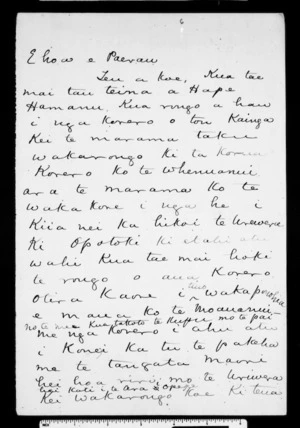 6
E hoa e Paerau
Tena a koe, Kua tae
mai tau teina a Hape
Hamanu. Kua rongo a hau
i nga korero o tou Kainga
Kei te marama taku
wakarongo ki ta korua
Korero ko te Whenuanui
ara te marama ko te
waka kore i nga he i
Kiia nei ka hikoi te Urewera
Ki Opotoki ki
wahi Kua tae mai hoki
te rongo o Korero
Otira Kaore i tino wakapono hia
e maua ko te Moananui
no te mea Kua takoto te Kupu mo te pai
me nga Korero i ahu atu
i Konei Ka tu te pakeha
me te tangata Maori
hei hoa riri mo te Urewera
Kei wakarongo Koe Ki tena